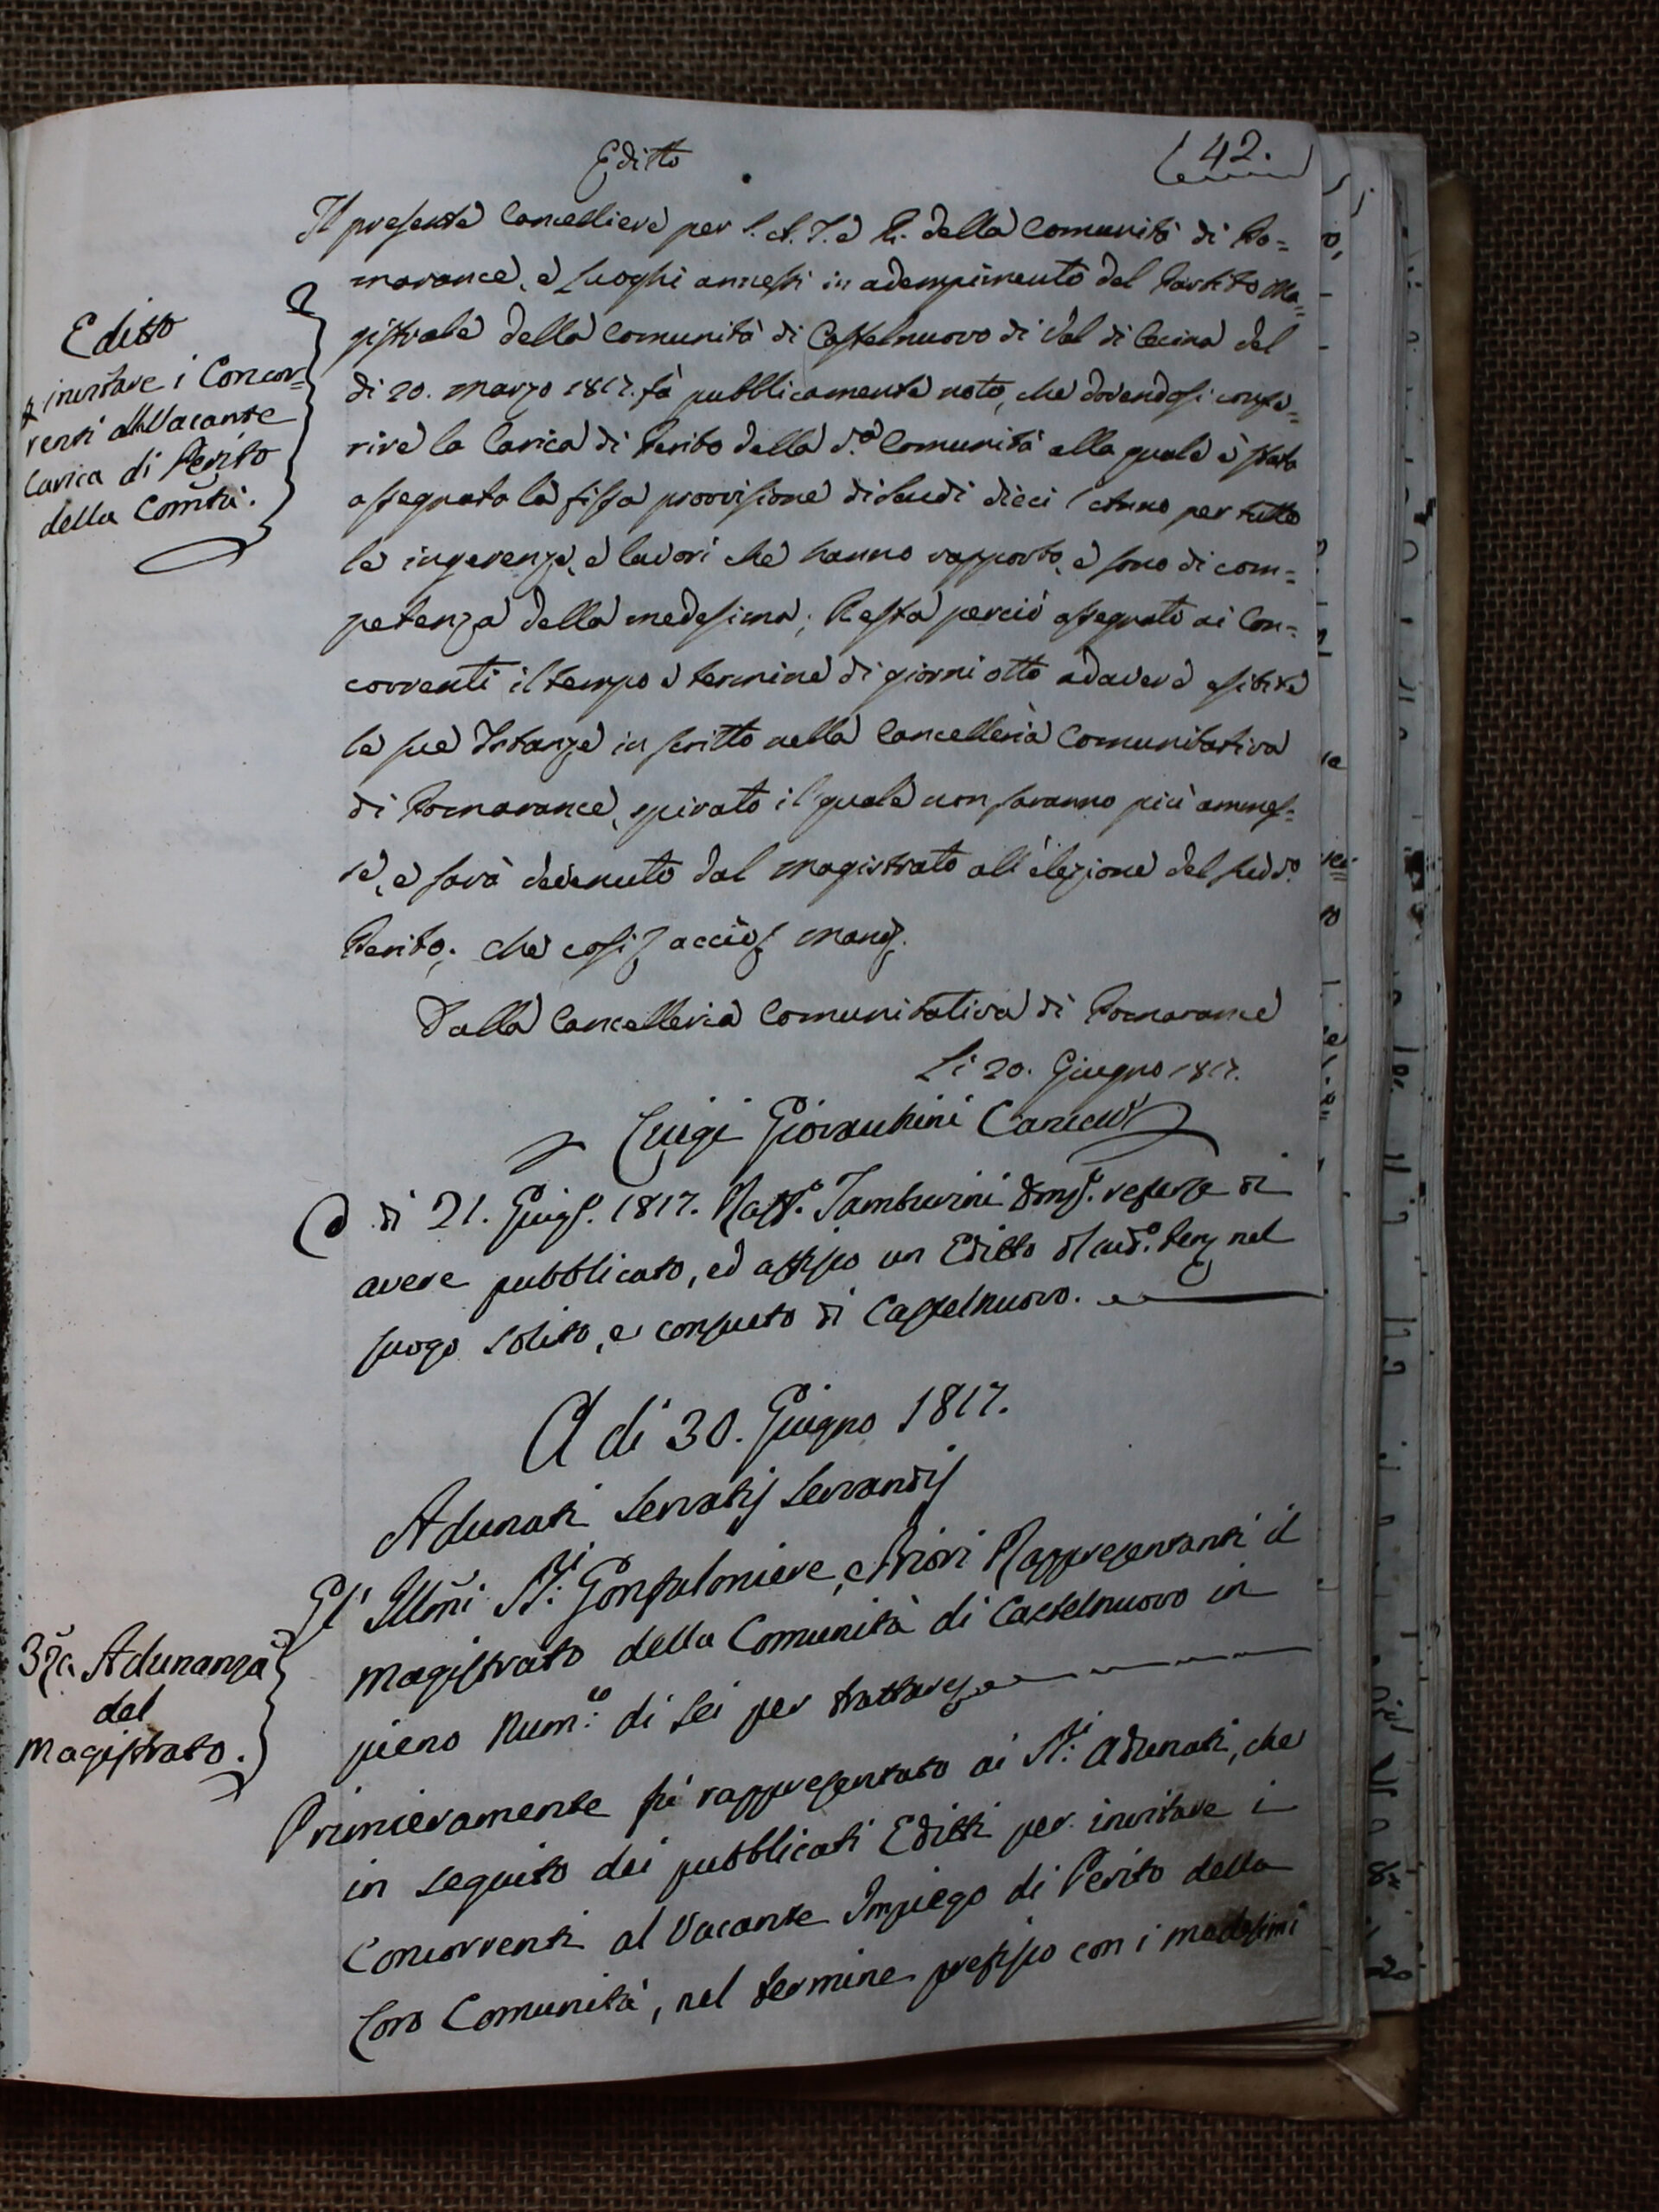 42.
Editto
Il presente Cancelliere per S. A. I. e R. della Comunità di Po=
marance, e Luoghi annessi in adempimento del Partito Ma=
gistrale della Comunità di Castelnuovo di Val di Cecina del
di 20. Marzo 1817. fà pubblicamente noto, che dovendosi confe=
rire la Carica di Perito della d.ª Comunità alla quale è stata
assegnata la fissa provvisione di Scudi dieci l'Anno per tutte
le ingerenze, e lavori che hanno rapporto, e sono di com=
petenza della medesima; Resta perciò assegnato ai Con=
correnti il tempo e termine di giorni otto ad avere esibite
le sue Istanze in scritto nella Cancelleria Comunitativa
di Pomarance, spirato il quale non saranno più ammes=
se, e sarà devenuto dal Magistrato all'elezione del sud.º
Perito; che così
Dalla Cancelleria Comunitativa di Pomarance
Li 20. Giugno 1817.
Luigi Giovanchini
Editto
invitare i Concor=
renti alla Vacante
Carica di Perito
della Comtà.
di 21. Giug.º 1817. Tamburini referse di
avere pubblicato, ed affisso un Editto nel
luogo solito, e consueto di Castelnuovo.
A di 30. Giugno 1817.
Adunati Servatis Servandis
Gl' Illmi SS.ri Gonfaloniere, e Priori Rappresentanti il
Magistrato della Comunità di Castelnuovo in
pieno Num.º di Sei per trattare
3za Adunanza
del
Magistrato.
Primieramente fù rappresentato ai SS.ri Adunati, che
in seguito dei pubblicati Editti per invitare i
Concorrenti al Vacante Impiego di Perito della
loro Comunità, nel termine prefisso con i medesimi